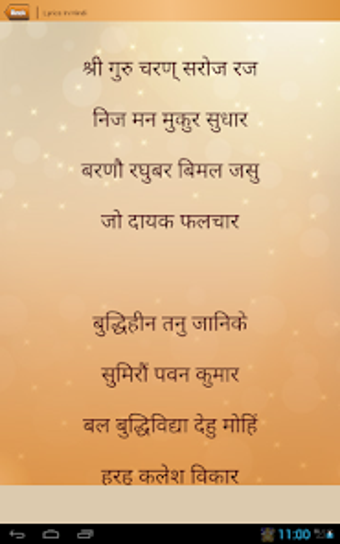 Back
Lyrics In Hindi
श्री गुरु चरण् सरोज रज
निज मन मुकुर सुधार
बरणौ रघुबर बिमल जसु
जो दायक फलचार
बुद्धिहीन तनु जानिके
सुमिरौं पवन कुमार
बल बुद्धिविद्या देहु मोहिं
हरहु कलेश विकार
11:00